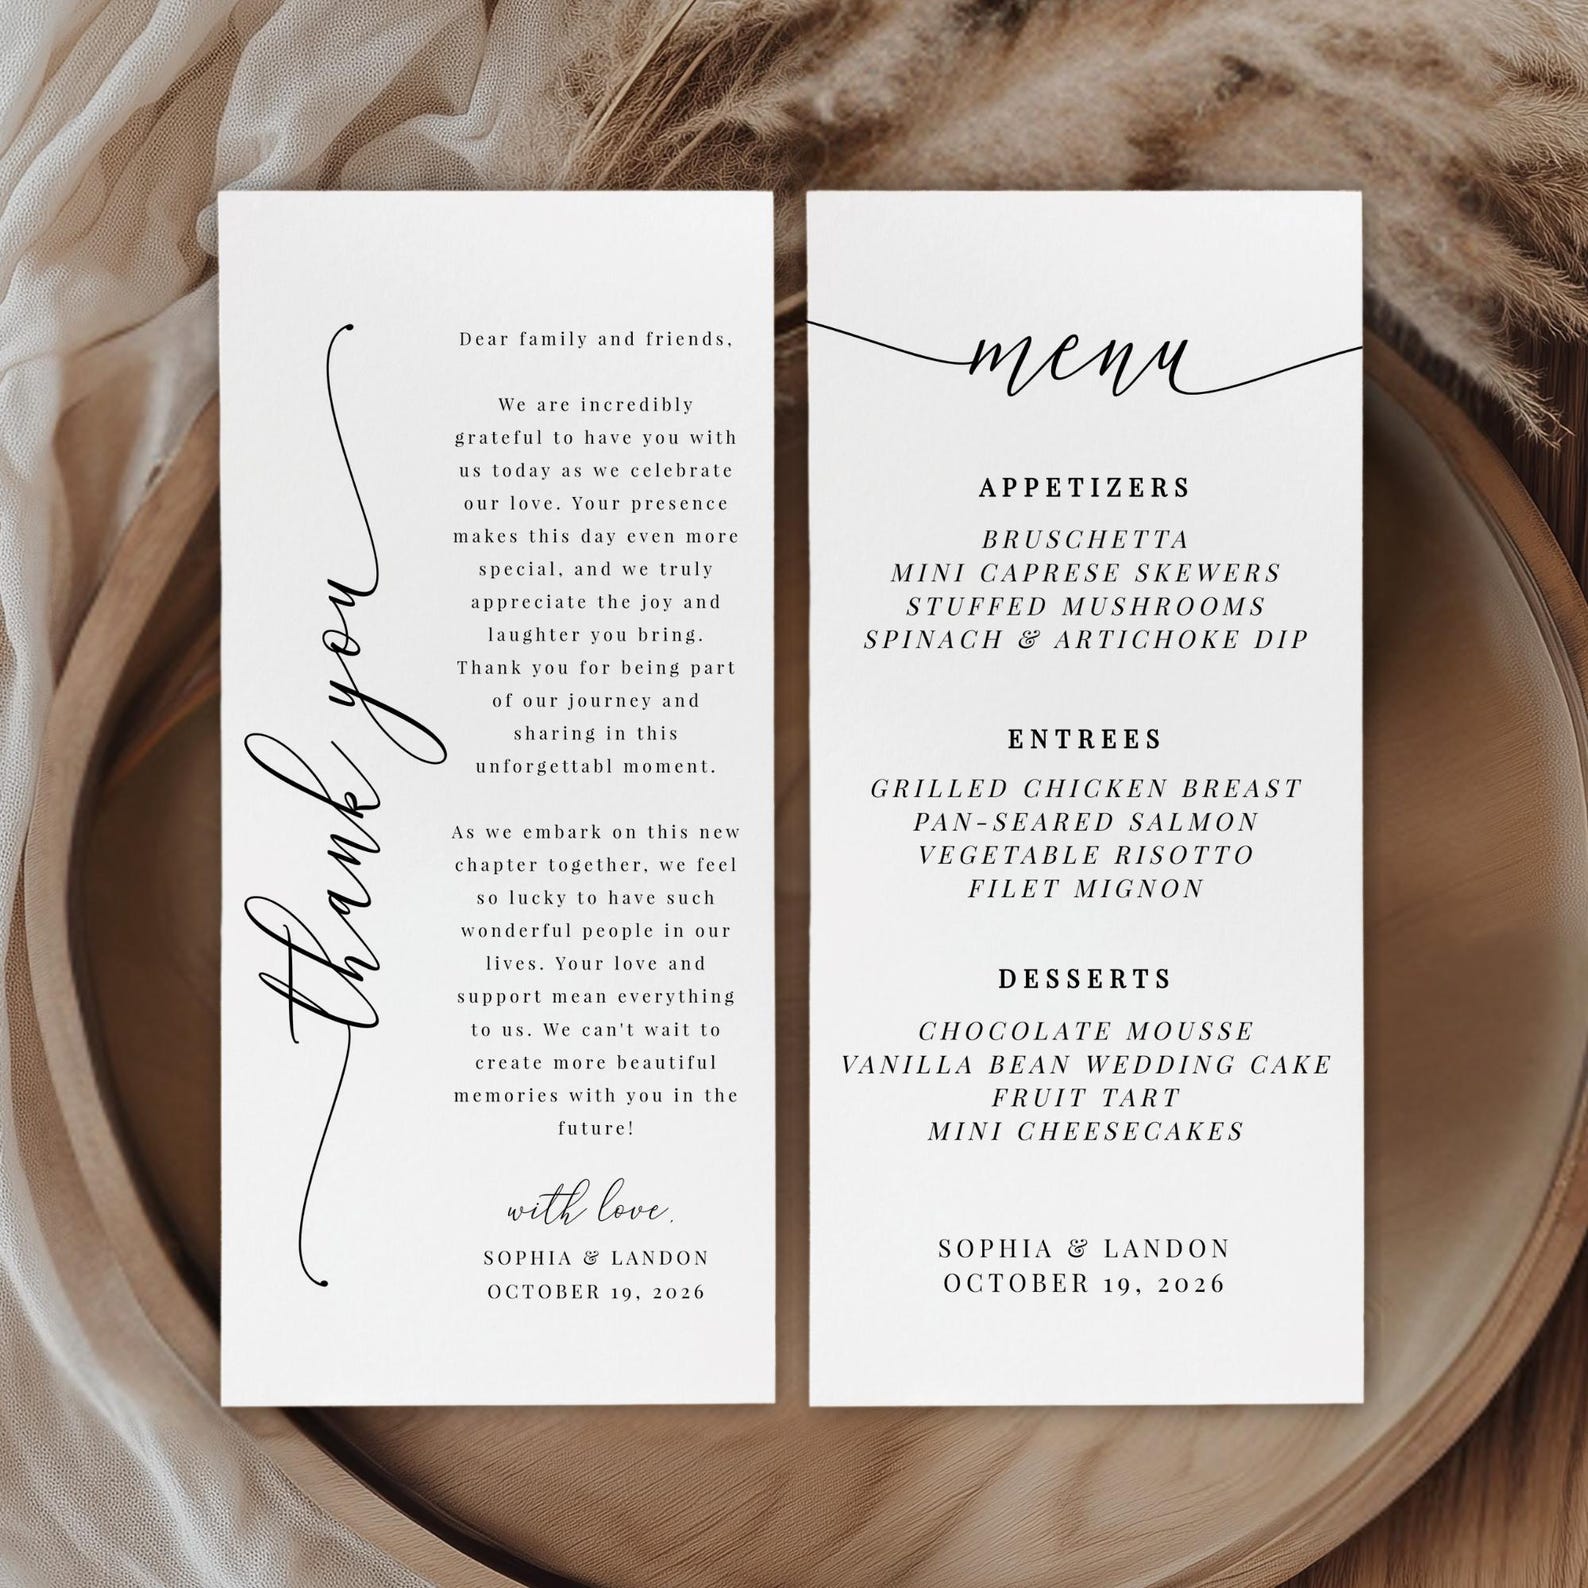 thank you
Dear family and friends,
We are incredibly
grateful to have you with
us today as we celebrate
our love. Your presence
makes this day even more
special, and we truly
appreciate the joy and
laughter you bring.
Thank you for being part
of our journey and
sharing in this
unforgettabl moment.
As we embark on this new
chapter together, we feel
so lucky to have such
wonderful people in our
lives. Your love and
support mean everything
to us. We can't wait to
create more beautiful
memories with you in the
future!
with love,
SOPHIA & LANDON
OCTOBER 19, 2026
menu
APPETIZERS
BRUSCHETTA
MINI CAPRESE SKEWERS
STUFFED MUSHROOMS
SPINACH & ARTICHOKE DIP
ENTREES
GRILLED CHICKEN BREAST
PAN-SEARED SALMON
VEGETABLE RISOTTO
FILET MIGNON
DESSERTS
CHOCOLATE MOUSSE
VANILLA BEAN WEDDING CAKE
FRUIT TART
MINI CHEESECAKES
SOPHIA & LANDON
OCTOBER 19, 2026